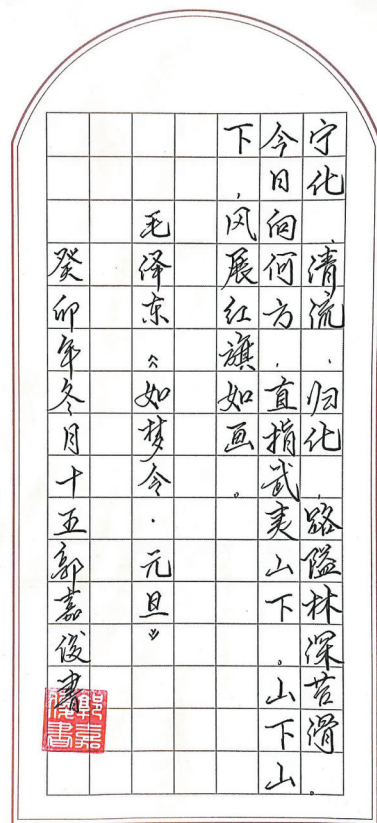 宁化、清流、归化,路隘林深苔滑。
今日向何方,直指武夷山下。山下山
下,风展红旗如画。
毛泽东《如梦令·元旦》
癸卯年冬月十五郭嘉俊書
郭嘉俊書